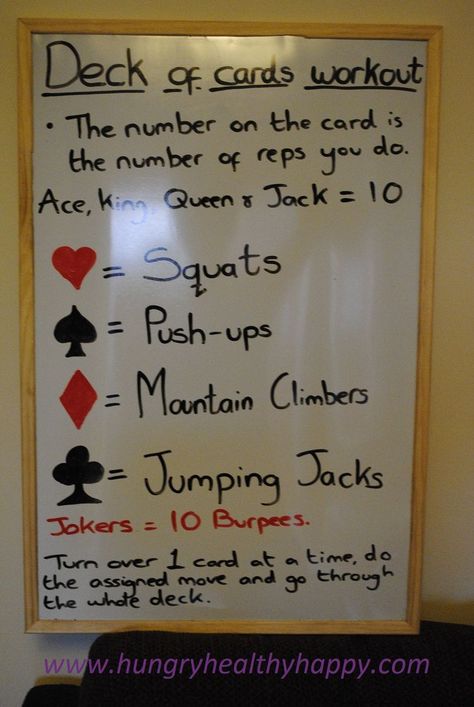 Deck of cards workout
• The number on the card is
the number of reps you do.
Ace, King, Queen & Jack = 10
= Squats
= Push-ups
= Mountain Climbers
= Jumping Jacks
Jokers = 10 Burpees.
Turn over 1 card at a time, do
the assigned move and go through
the whole deck.
www.hungryhealthyhappy.com